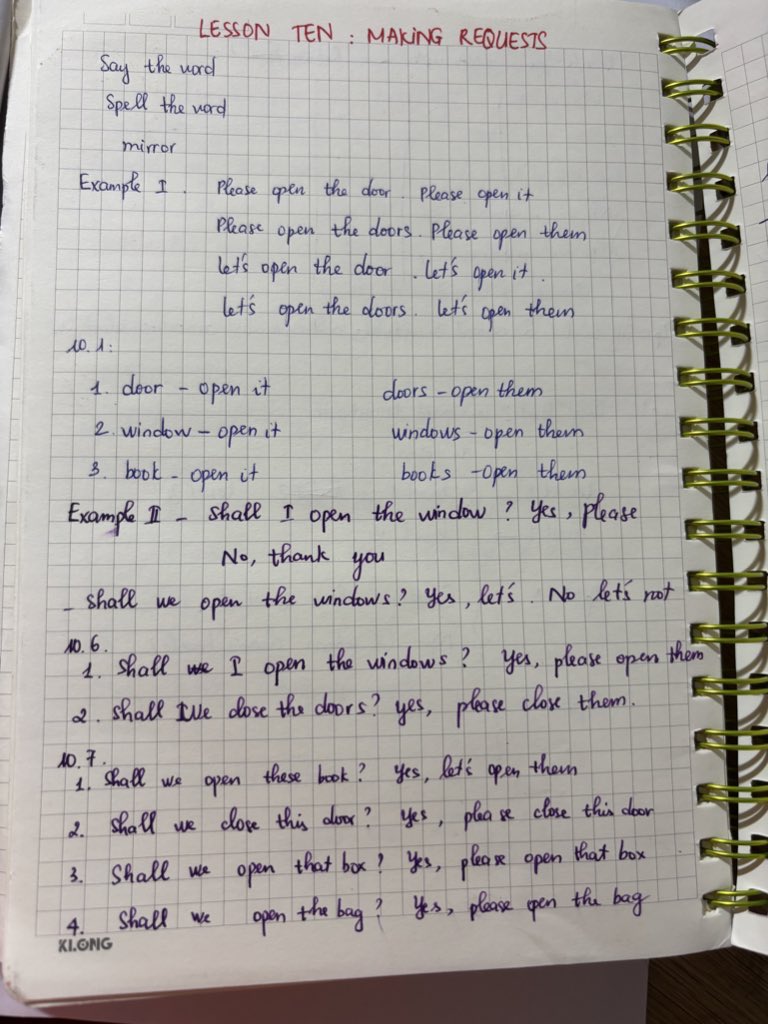 LESSON TEN : MAKING REQUESTS
Say the word
Spell the word
mirror
Example I. Please open the door. Please open it
Please open the doors. Please open them
let's open the door. let's open it.
let's open the doors. let's open them
10.1:
1. door - open it doors - open them
2. window - open it windows - open them
3. book - open it books - open them
Example II - Shall I open the window? Yes, please
No, thank you
- Shall we open the windows? Yes, let's. No let's not
10.6.
1. Shall I open the windows? Yes, please open them
2. Shall We close the doors? yes, please close them.
10.7.
1. Shall we open these book? Yes, let's open them
2. Shall we close this door? Yes, please close this door
3. Shall we open that box? Yes, please open that box
4. Shall we open the bag? Yes, please open the bag
KLONG